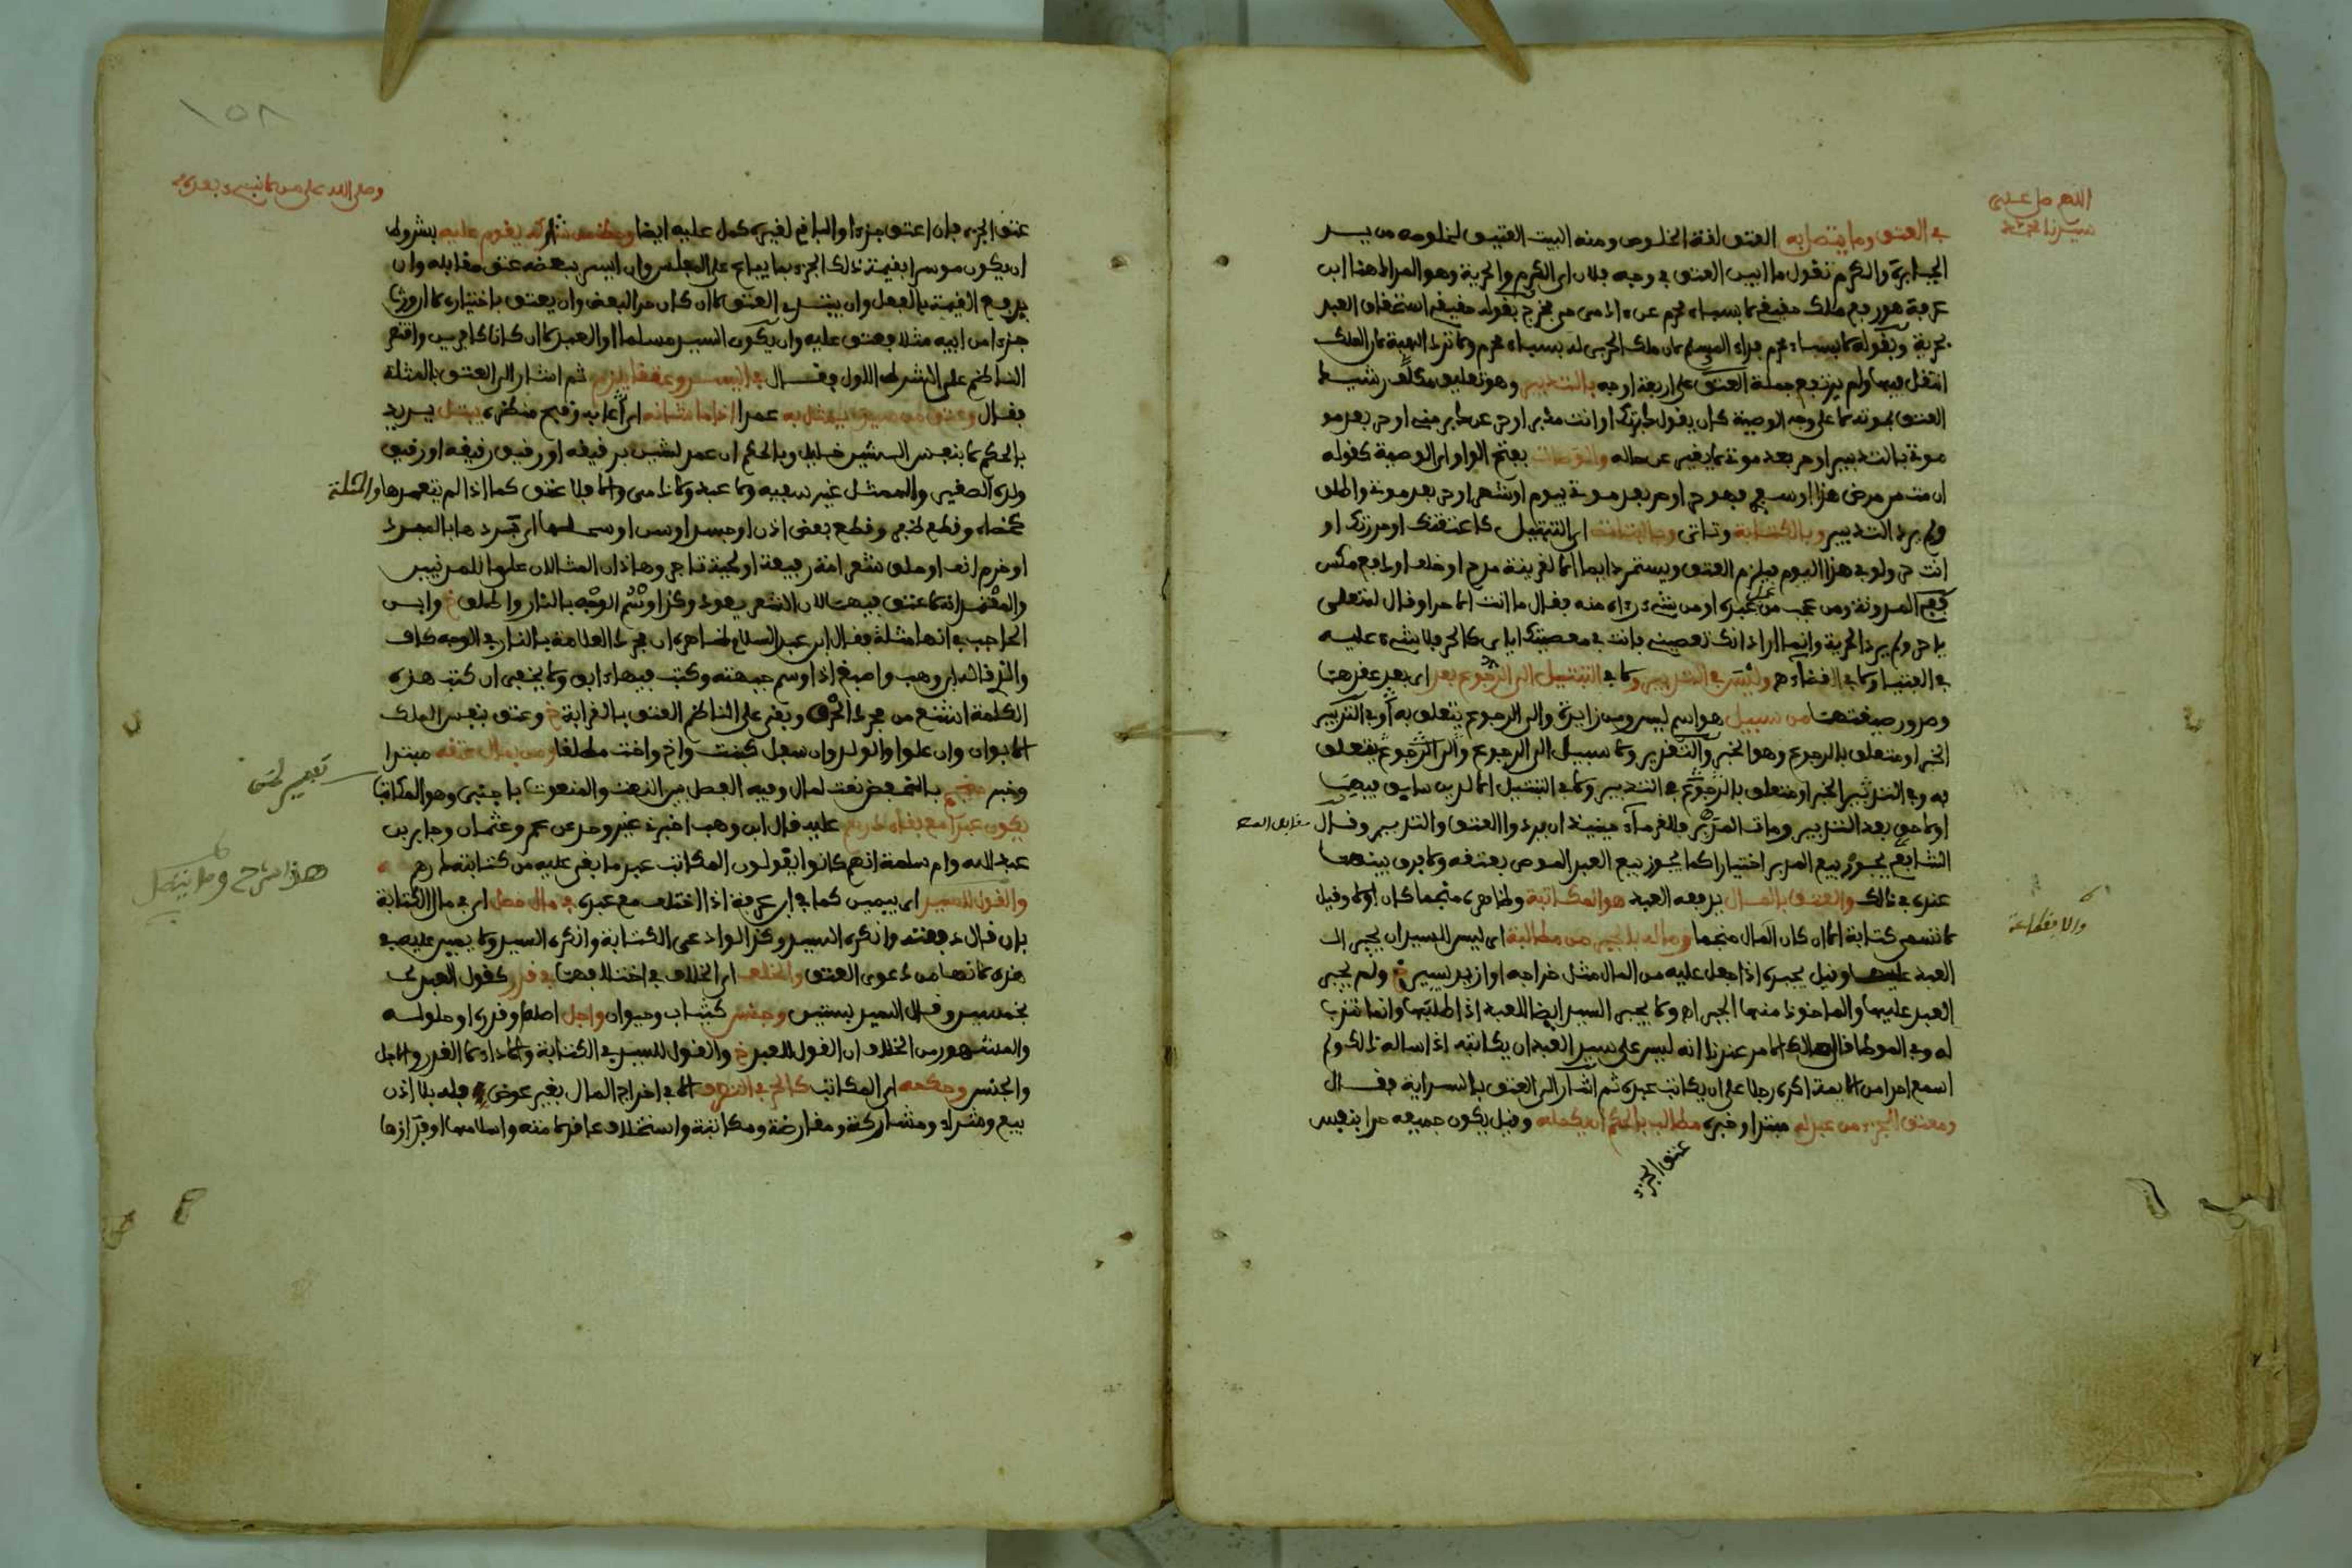 اللهم صل على
سيدنا محمد
في العتق وما يتصل به العتق لغة الخلوص ومنه البيت العتيق لخلوصه من يد
الجبابرة والكرم تقول ما ابين العتق في وجه فلان اي الكرم والحرية وهو المراد هنا ابن
عرفة هو رفع ملك حقيقي لا بسباء محرم عن ادمي حي فخرج بقوله حقيقي استحقاق العبد
بحرية وبقوله لا بسباء محرم فداء المسلم
العتق بموته لا على وجه الوصية كان يقول دبرتك او انت مدبر او حر عن دبر مني او حر بعد مو
موتي بالتدبير او حر بعد موتي لا يغير عن حاله والتوصات بفتح الواو اي الوصية كقوله
ان مت من مرضي هذا او سفري فهو حر او حر بعد موتي بيوم او شهر او حر بعد موتي واطلق
ولم يرد التدبير وبالكتابة وتاتي وبالبتات اي التبتيل كاعتقتك او حررتك او
انت حر ولو في هذا اليوم فيلزم العتق ويستمر دايما الا لقرينة مدح او خلف او دفع مكس
ففي المدونة ومن عجب من عمل عبده او من شيء رءاه منه فقال ما انت الا حر او قال له تعالى
يا حر ولم يرد الحرية وانما اراد انك تعصيني فانت في معصيتك اياي كالحر فلا شيء عليه
في الفتيا ولا في القضاء وليس في التدبير ولا في التبتيل الى الرجوع بعد اي بعد عقدهما
وصدور صيغتهما من سبيل هو اسم ليس ومن زايدة والى الرجوع يتعلق به او في التدبير
الخبر او متعلق بالرجوع وهو الخبر والتقدير ولا سبيل الى الرجوع
به وفي التدبير الخبر او متعلق بالرجوع في التدبير ولا في التبتيل الا لدين سابق فيهما
او لاحق بعد التدبير ومات المدبر فللغرماء حينئذ ان يردوا العتق والتدبير وقال
الشافعي يجوز بيع المدبر اختيارا كما يجوز بيع العبد الموصى بعتقه ولا فرق بينهما
عنده في ذلك والعتق بالمال يدفعه العبد هو المكاتبة وظاهره منجما كان اولا وقيل
لا تسمى كتابة الا ان كان المال منجما وماله بالجبر من مطالبة اي ليس للسيد ان يجبر
العبد عليها وقيل يجبره اذا جعل عليه من المال مثل خراجه او ازيد بيسير خ ولم يجبر
العبد عليها والماخوذ منها الجبر اهـ ولا يجبر السيد ايضا للعبد اذا طلبها وانما تندب
له وفي الموطا قال مالك الامر عندنا انه ليس على سيد العبد ان يكاتبه اذا ساله ذلك ولم
اسمع احدا من الايمة اكره رجلا على ان يكاتب عبده ثم اشار الى العتق بالسراية فقال
ومعتق الجزء من عبد له مبتدا وخبره مطالب بالحكم ان يكمله وقيل يكون جميعه حرا بنفس
عتق الجزء
والانقطاعة
١٥٨
وصلى الله على من لا نبيء بعده
عتق الجزء فان اعتق جزءا والباقي لغيره كمل عليه ايضا وحظ من شارك يقوم عليه بشروط
ان يكون موسرا بقيمة ذلك الجزء بما يباع على المفلس وان ايسر ببعضه عتق مقابله وان
يدفع القيمة بالفعل وان يبتدء العتق لا ان كان حر البعض وان يعتق باختياره لا ان ورث
جزءا من ابيه مثلا فعتق عليه وان يكون السيد مسلما او العبد لا ان كانا كافرين واقتصر
الناظم على الشرط الاول فقال في اليسر وعتقا يلزم ثم اشار الى العتق بالمثلة
فقال وعتق من سيده يمثل به عمدا اذا ما شانه اي عابه وقبح منظره يبتل يريد
بالحكم لا بنفس الشين خليل وبالحكم ان عمد لشين برقيقه او رقيق رقيقه او رقيق
ولده الصغير والممثل غير سفيه ولا عبد ولا ذمي والا فلا عتق كما اذا لم يتعمدها والمثلة
كخصاء وقطع ظفر وقطع بعض اذن او جسد او سن او سحلها اي بردها بالمبرد
او خرم انف او حلق شعر امة رفيعة او لحية تاجر وهاذان المثالان على ما للمدنيين
والمعتمد انه لا عتق فيهما لان الشعر يعود وكذا وشم الوجه بالنار واطلق خ وابن
الحاجب في انها مثلة فقال ابن عبد السلام ظاهره ان مجرد العلامة بالنار في الوجه كاف
والذي قاله ابن وهب واصبغ اذا وسم جبهته وكتب فيها ءابق ولا يخفى ان كتب هذه
الكلمة اشنع من مجرد الحرق وبقي على الناظم العتق بالقرابة خ وعتق بنفس الملك
الابوان وان علوا والولد وان سفل كبنت واخ واخت مطلقا ومن بمال عتقه مبتدا
وخبر منجم بالخفض نعت لمال وفيه الفصل بين النعت والمنعوت باجنبي وهو المكاتب
يكون عبدا مع بقاء درهم عليه قال ابن وهب اخبرني غير واحد عن عمر وعثمان وجابر بن
عبد الله وام سلمة انهم كانوا يقولون المكاتب عبد ما بقي عليه من كتابته درهم
والقول للسيد اي بيمين كما في ابن عرفة اذا اختلف مع عبده في مال حصل اي في مال الكتابة
بان قال دفعته وانكره السيد وكذا لو ادعى الكتابة وانكره السيد ولا يمين عليه في
هذه لانها من دعوى العتق والخلف اي الخلاف في اختلافهما في قدر كقول العبد لي
بخمسين وقال السيد بستين وجنس كثياب وحيوان واجل اصله او قدره او حلوله
والمشهور من الخلاف ان القول للعبد خ والقول للسيد في الكتابة والاداء لا القدر والاجل
والجنس وحكمه اي المكاتب كالحر في التصرف الا في اخراج المال بغير عوض فله بلا اذن
بيع وشراء ومشاركة ومقارضة ومكاتبة واستخلاف عاقد لامته واسلامها او فداؤها
هذا شرح وما يتصل